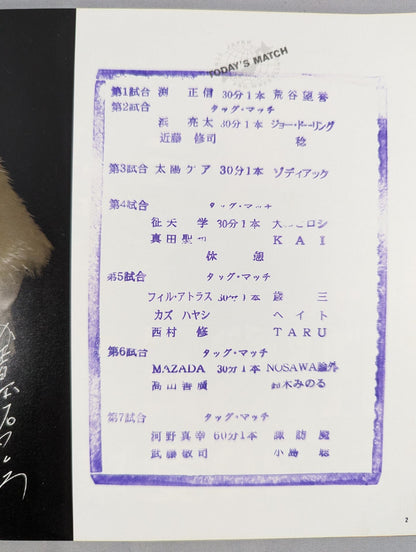 TODAY'S MATCH
第1試合 渕 正信 30分1本 荒谷望誉
第2試合 タッグ・マッチ
浜 亮太 30分1本 ジョー・ドーリング
近藤 修司 稔
第3試合 太陽ケア 30分1本 ゾディアック
第4試合 タッグ・マッチ
征矢 学 30分1本 大 ヒロシ
真田聖 KAI
休憩
第5試合 タッグ・マッチ
フィル・アトラス 30分1本 歳三
カズ ハヤシ ヘイト
西村 修 TARU
第6試合 タッグ・マッチ
MAZADA 30分1本 NOSAWA論外
高山善廣 鈴木みのる
第7試合 タッグ・マッチ
河野真幸 60分1本 諏訪魔
武藤敬司 小島 聡
2